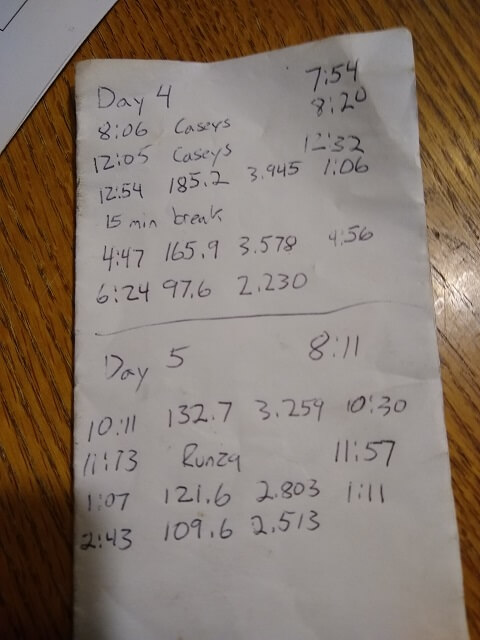 Day 4 7:54
8:20
8:06 Caseys
12:05 Caseys 12:32
12:54 185.2 3.945 1:06
15 min break
4:47 165.9 3.578 4:56
6:24 97.6 2.230
Day 5 8:11
10:11 132.7 3.259 10:30
11:13 Runza 11:57
1:07 121.6 2.803 1:11
2:43 109.6 2.513